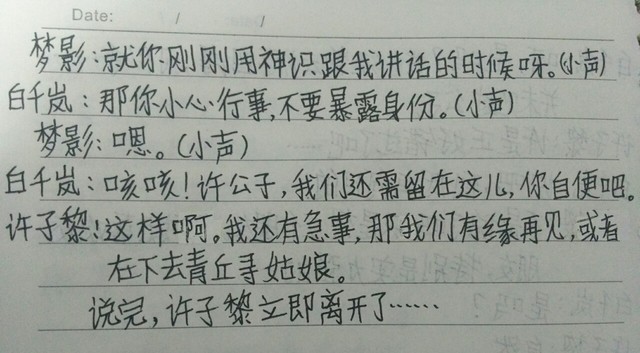 Date: / /
梦影:就你刚刚用神识跟我讲话的时候呀。(小声)
白千岚:那你小心行事,不要暴露身份。(小声)
梦影:嗯。(小声)
白千岚:咳咳!许公子,我们还需留在这儿,你自便吧。
许子黎!这样啊。我还有急事,那我们有缘再见,或者
在下去青丘寻姑娘。
说完,许子黎立即离开了……